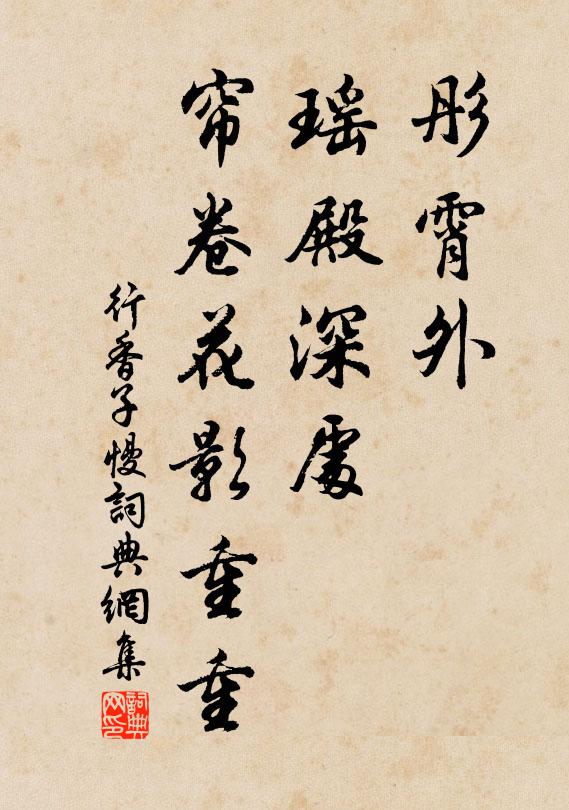 彤霄外
瑶殿深處
帘卷花影重重
行香子慢詞典網集
詞典网印